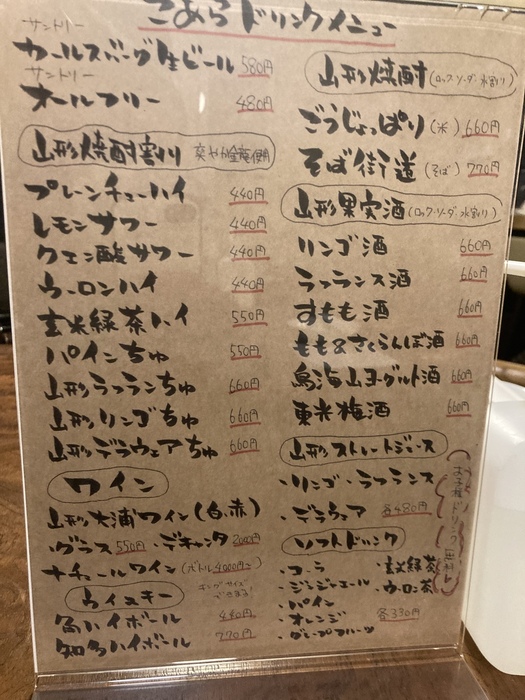 こあらドリンクメニュー
サントリー
カールスバーグ生ビール 580円
サントリー
オールフリー 480円
山形焼酎割り 爽やか金龍使用
プレーンチューハイ 440円
レモンサワー 440円
クエン酸サワー 440円
ウーロンハイ 440円
玄米緑茶ハイ 550円
パインちゅ 550円
山形ラフランちゅ 660円
山形リンゴちゅ 660円
山形デラウェアちゅ 660円
ワイン
山形大浦ワイン(白、赤)
・グラス 550円 ・デキャンタ 2000円
ナチュールワイン(ボトル4000円〜)
ウイスキー
キングサイズできます!
角ハイボール 440円
知多ハイボール 770円
山形焼酎(ロック・ソーダ・水割り)
ごうじょっぱり(米) 660円
そば街道(そば) 770円
山形果実酒(ロック・ソーダ・水割り)
リンゴ酒 660円
ラフランス酒 660円
すもも酒 660円
もも&さくらんぼ酒 660円
鳥海山ヨーグルト酒 660円
東光梅酒 660円
山形ストレートジュース
・リンゴ ・ラフランス
・デラウェア 各480円
ソフトドリンク
・コーラ ・玄米緑茶
・ジンジャエール ・ウーロン茶
・パイン
・オレンジ 各330円
・グレープフルーツ
お子様ドリンク無料!